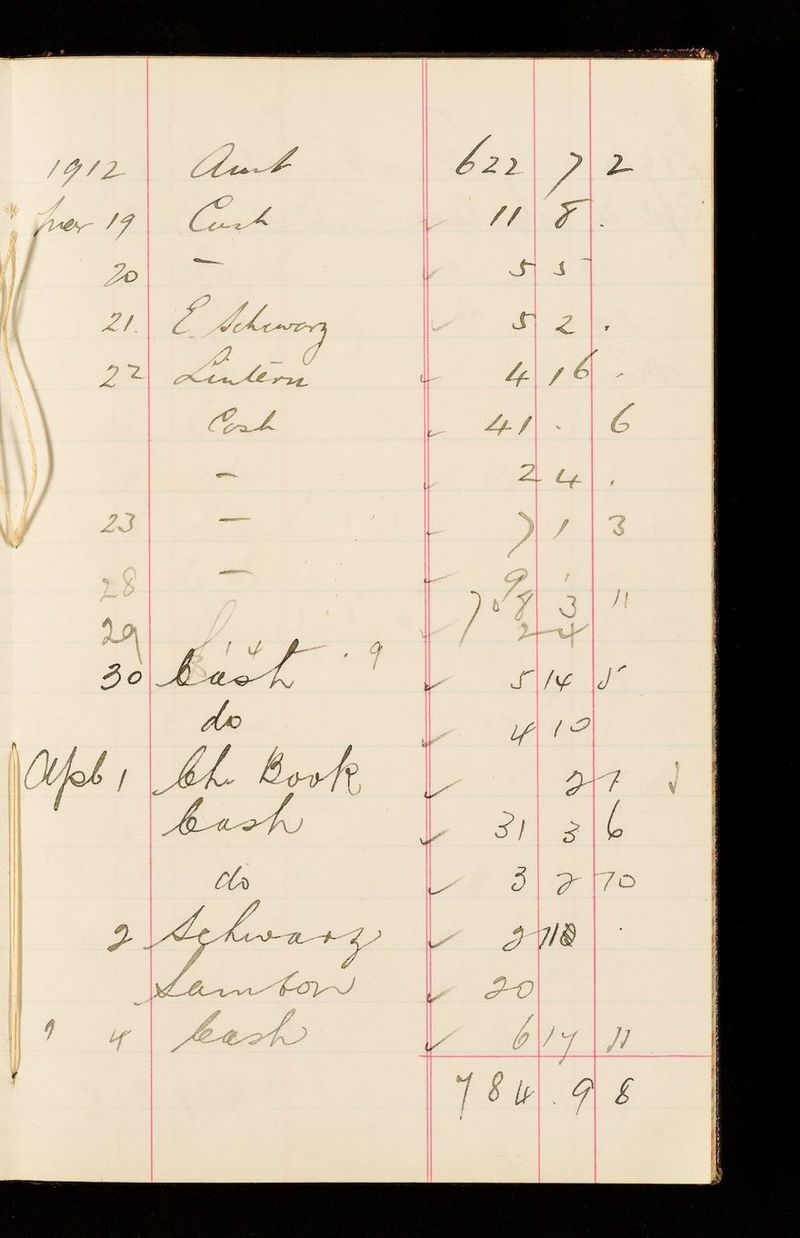 1912 Amt 622 7 2
Mar 19 Cash ✓ 11 8 .
20 — ✓ 5 5
21. E. Schwarz ✓ 5 2 .
22 Lintern ✓ 4 16 .
Cash ✓ 41 . 6
— ✓ 2 4 .
23 — ✓ 7 1 3
28 — ✓ 9 .
708 3 11
29 ✓ 2 4
1 4 . 9
30 Cash ✓ 5 14 5
do ✓ 4 10
Apl 1 Ch. Book ✓ 2 1
Cash ✓ 31 3 6
do ✓ 3 2 10
2 Schwarz ✓ 2 11 .
Samson ✓ 20
4 Cash ✓ 6 17 11
784 . 9 8